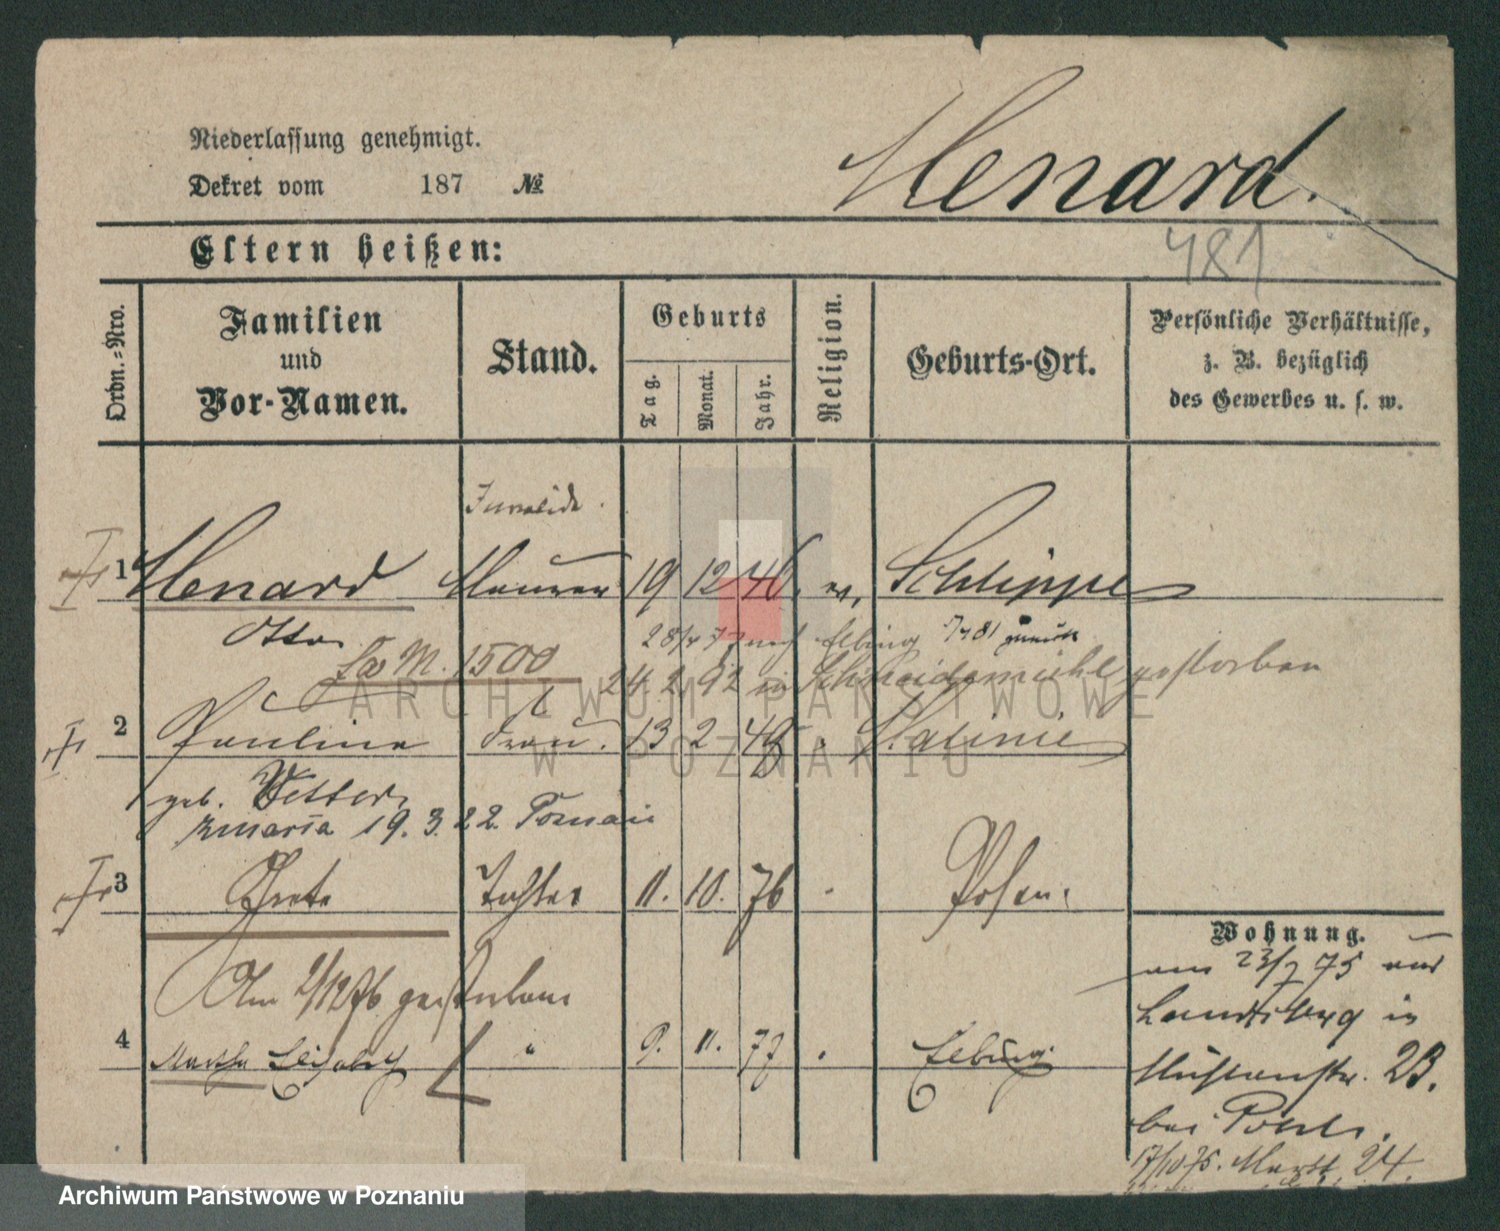 Niederlassung genehmigt.
Dekret vom 187 №
Menard.
481
Eltern heißen:
Ordn.=Nro.
Familien
und
Vor-Namen.
Stand.
Geburts
Tag.
Monat.
Jahr.
Religion.
Geburts-Ort.
Persönliche Verhältnisse,
z. B. bezüglich
des Gewerbes u. s. w.
Invalide.
1 Menard Maurer 19 12 46. ev. Schlippe
Otto 28/4 77 nach Elbing 81 zurück
M. 1500 24.2.92 in Schneidemühl gestorben
2 Paulina Frau. 13 2 49
geb. Vetter
zmarła 19.3.22. Poznań
3 Grete Tochter 11. 10. 76 Posen.
Am 2/12 76 gestorben
4 Martha Elisabeth " 9. 11. 77 Elbing
Wohnung.
am 23/7 75 aus
Landsberg in
23.
bei
17/10 75. Markt 24.
ARCHIWUM PAŃSTWOWE
W POZNANIU
Archiwum Państwowe w Poznaniu